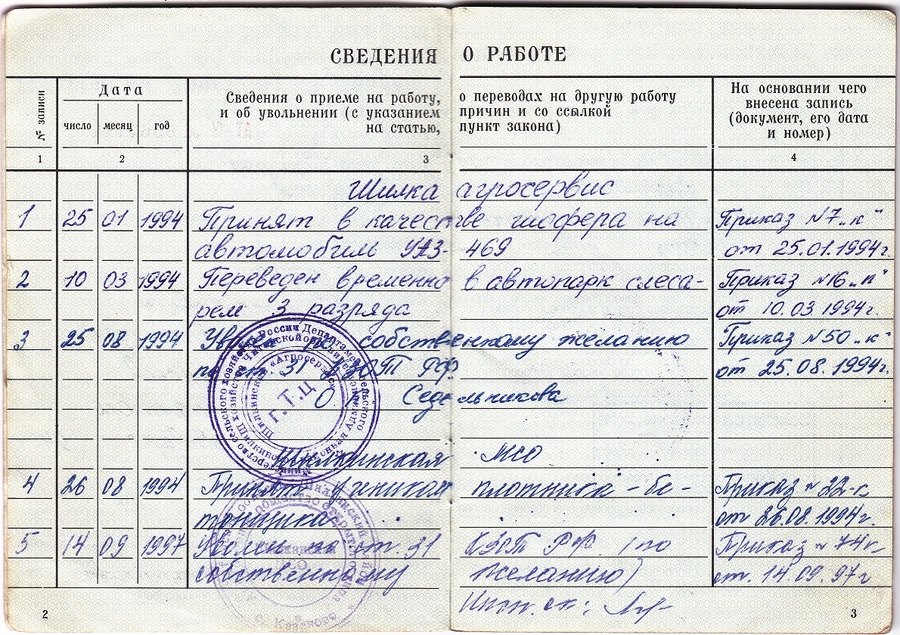 СВЕДЕНИЯ О РАБОТЕ
№ записи
Дата
число месяц год
Сведения о приеме на работу, о переводах на другую работу
и об увольнении (с указанием причин и со ссылкой
на статью, пункт закона)
На основании чего
внесена запись
(документ, его дата
и номер)
1 2 3 4
Шилка агросервис
1 25 01 1994 Принят в качестве шофера на Приказ №7 „к"
автомобиль УАЗ-469 от 25.01.1994г.
2 10 03 1994 Переведен временно в автопарк слеса- Приказ №16 „к"
рем 3 разряда от 10.03.1994г.
3 25 08 1994 по собственному желанию Приказ №50 „к"
по ст. 31 КЗоТ РФ от 25.08.1994г.
Седельникова
Шилкинская МСО
4 26 08 1994 Принят учеником плотника-бе- Приказ № 22-к
тонщика от 26.08.1994г.
5 14 09 1997 Уволен по ст. 31 КЗоТ РФ (по Приказ № 74к
собственному желанию) от. 14.09.97г
Инсп. ок:
2 3